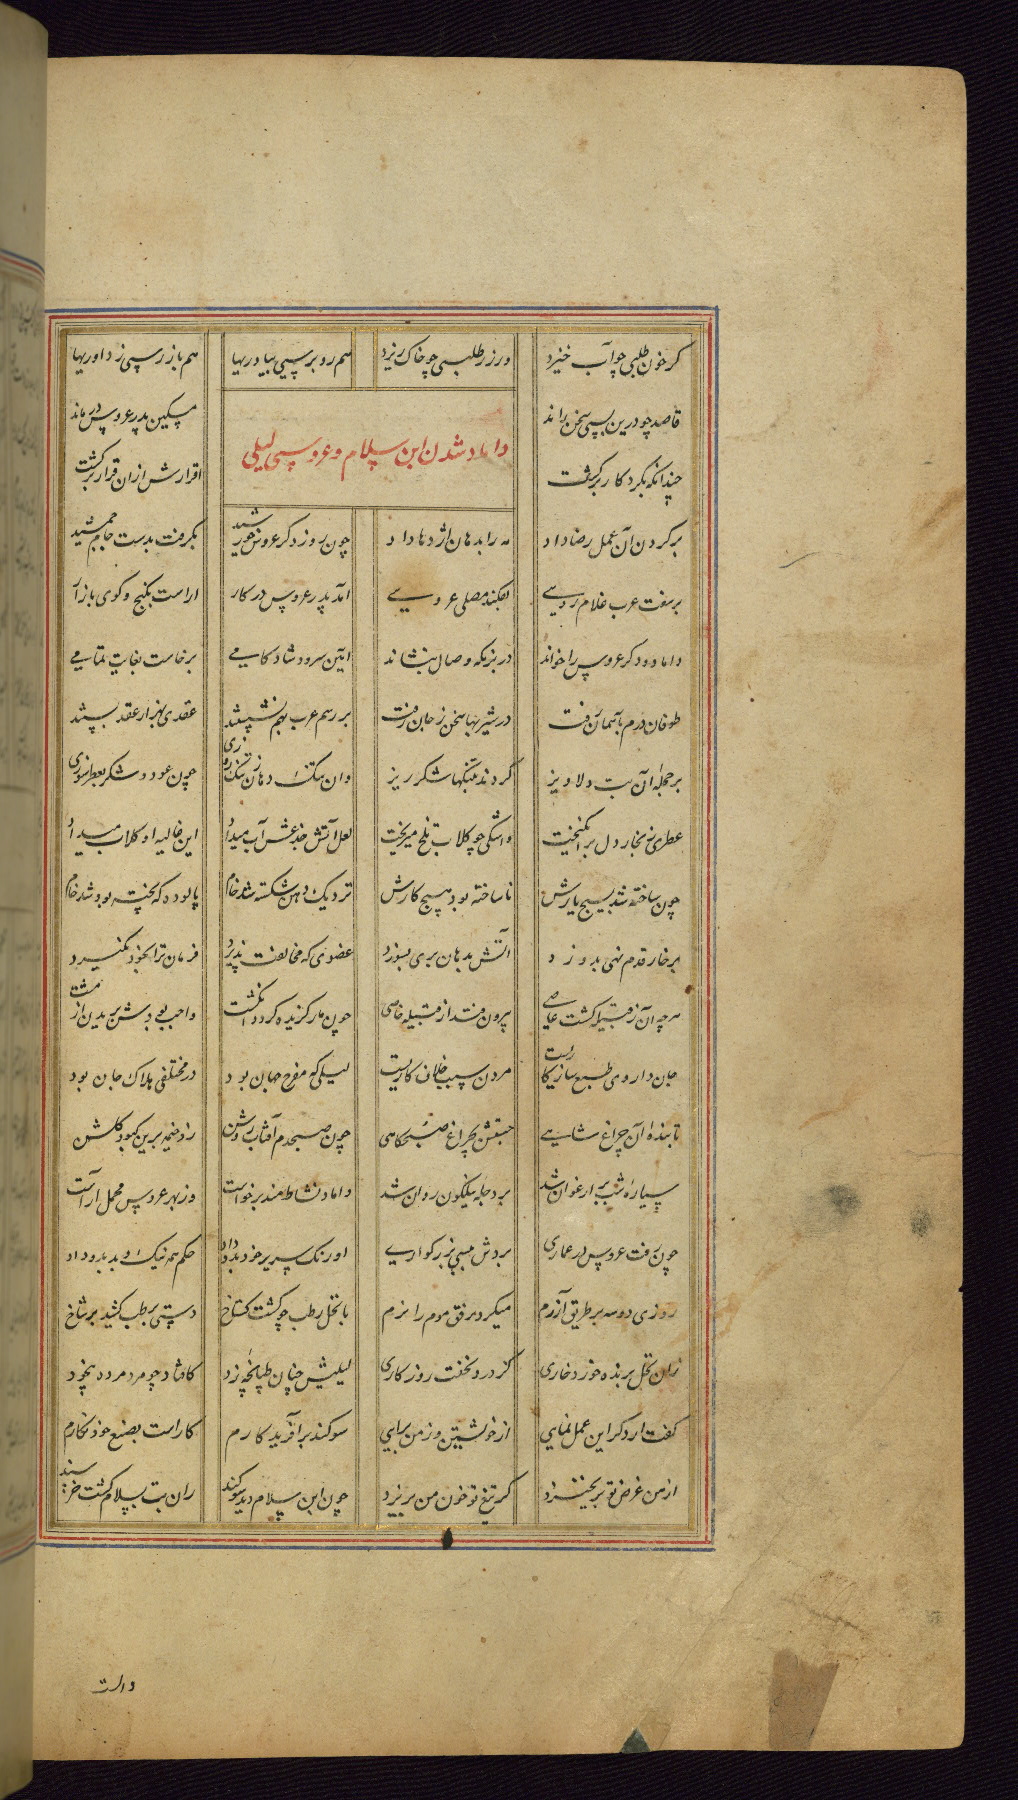 کر خون طلبی چو آب خیزد ورزر طلبسی چو خاک ریزد هم رو بر سپی بیاوریها هم باز رسپی زداوریها
قاصد چو درین بسی سخن راند مسکین پدر عروس در ماند
داماد شدن ابن سلام و عروسی لیلی
چندانکه بکرد کار برکشت اقرارش ازان قرار برکشت
برکردن آن عمل رضا داد مه را بدهان اژدها داد چون روز دکر عروس خورشید بکرفت بدست جام جمشید
برسفت عرب غلام روسی افکند مصلی عروسی آمد پدر عروس در کار اراست بکنج و کوی بازار
داماد دکر عروس را خواند در بزمکه وصال بنشاند آیین سرود شادکامی برخاست بغایت تمامی
بر رسم عرب بهم نشستند عقدی بهزار عقد بستند
طوفان درم بآسمان رفت در شیر بها سخن ز جان رفت
بر حجله آن بت دلاویز کردند بتنکها شکر ریز وان تنک دهان تنک روزی چون عود و شکر بعطر سوزی
عطری ز بخار دل برانکیخت واشکی چو کلاب تلخ میریخت لعل آتش و جزعش آب میداد این غالیه او کلاب میداد
چون ساخته شد بسیج یارش ناساخته بود هیچ کارش نزدیک دهن شکسته شد جام پالوده که پخته بود شد خام
بر خار قدم نهی بدوزد آتش بدهان بری بسوزد عضوی که مخالفت پذیرد فرمان ترا بخود نکیرد
هر چه آن ز قبیله کشت عاصی بیرون فتد از قبیله خاصی چون مار کزیده کردد انکشت واجب بودش بریدن از مشت
جان داروی طبع سازکاریست مردن سبب خلاف کاریست لیلی که مفرح جهان بود در مختلفی هلاک جان بود
تابنده آن چراغ شاهی چون صبحدم آفتاب روشن زد خیمه برین کبود کلشن
سیاره شب بر ارغوان شد بر دجله نیلکون روان شد داماد نشاط مند برخواست وز بهر عروس محمل اراست
چون رفت عروس در عماری بردش ببسی بزرکواری اورنک سریر خود بدو داد حکم همه نیک و بد بدو داد
روزی دو سه بر طریق آزرم میکرد برفق موم را نرم با نخل رطب چو کشت کستاخ دستی برطب کشید بر شاخ
زان نخل برنده خورد خاری کز درد نخفت روزکاری لیلیش چنان طپانچه زد کافتاد چو مرد مرده بیخود
کفت ار دکر این عمل نمایی از خویشتن و ز من برایی سوکند بر آفریدکارم کاراست بصنع خود نکارم
از من غرض تو برنخیزد کر تیغ تو خون من بریزد چون ابن سلام دید سوکند زان بت بسلام کشت خرسند